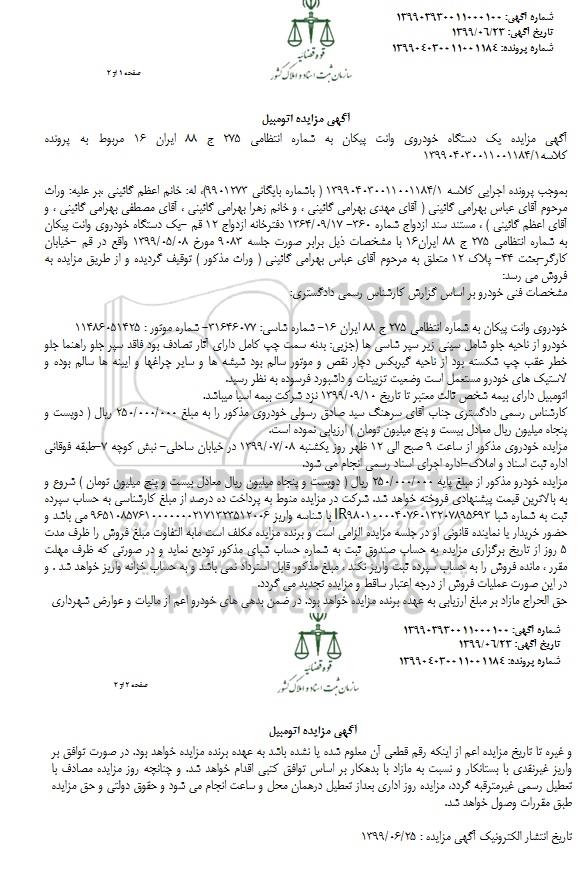 شماره آگهی: ۱۳۹۹۰۳۹۳۰۰۱۱۰۰۰۱۰۰
تاریخ آگهی: ۱۳۹۹/۰۶/۲۳
شماره پرونده: ۱۳۹۹۰۴۰۳۰۰۱۱۰۰۱۱۸۴
قوه قضائیه
سازمان ثبت اسناد و املاک کشور
صفحه ۱ از ۲
آگهی مزایده اتومبیل
آگهی مزایده یک دستگاه خودروی وانت پیکان به شماره انتظامی ۲۷۵ ج ۸۸ ایران ۱۶ مربوط به پرونده
کلاسه۱۳۹۹۰۴۰۳۰۰۱۱۰۰۱۱۸۴/۱
بموجب پرونده اجرایی کلاسه ۱۳۹۹۰۴۰۳۰۰۱۱۰۰۱۱۸۴/۱ ( باشماره بایگانی ۹۹۰۱۲۷۳)، له: خانم اعظم گائینی ،بر علیه: وراث
مرحوم آقای عباس بهرامی گائینی ( آقای مهدی بهرامی گائینی ، و خانم زهرا بهرامی گائینی ، آقای مصطفی بهرامی گائینی ، و
آقای اعظم گائینی ) ، مستند سند ازدواج شماره ۳۶۰- ۱۳۶۴/۰۹/۱۷ دفترخانه ازدواج ۱۲ قم -یک دستگاه خودروی وانت پیکان
به شماره انتظامی ۲۷۵ ج ۸۸ ایران۱۶ با مشخصات ذیل برابر صورت جلسه ۹۰۸۳ مورخ ۱۳۹۹/۰۵/۰۸ واقع در قم -خیابان
کارگر-بعثت ۴۴- پلاک ۱۲ متعلق به مرحوم آقای عباس بهرامی گائینی ( وراث مذکور ) توقیف گردیده و از طریق مزایده به
فروش می رسد:
مشخصات فنی خودرو بر اساس گزارش کارشناس رسمی دادگستری:
خودروی وانت پیکان به شماره انتظامی ۲۷۵ ج ۸۸ ایران ۱۶- شماره شاسی: ۳۱۶۴۶۰۷۷- شماره موتور : ۱۱۴۸۶۰۵۱۴۲۵
خودرو از ناحیه جلو شامل سینی زیر سپر شاسی ها (جزیی: بدنه سمت چپ کامل دارای آثار تصادف بود فاقد سپر جلو راهنما جلو
خطر عقب چپ شکسته بود از ناحیه گیربکس دچار نقص و موتور سالم بود شیشه ها و سایر چراغها و آیینه ها سالم بوده و
لاستیک های خودرو مستعمل است وضعیت تزیینات و داشبورد فرسوده به نظر رسید.
اتومبیل دارای بیمه شخص ثالث معتبر تا تاریخ ۱۳۹۹/۰۹/۱۰ نزد شرکت بیمه آسیا میباشد.
کارشناس رسمی دادگستری جناب آقای سرهنگ سید صادق رسولی خودروی مذکور را به مبلغ ۲۵۰/۰۰۰/۰۰۰ ریال ( دویست و
پنجاه میلیون ریال معادل بیست و پنج میلیون تومان ) ارزیابی نموده است.
مزایده خودروی مذکور از ساعت ۹ صبح الی ۱۲ ظهر روز یکشنبه ۱۳۹۹/۰۷/۰۸ در خیابان ساحلی- نبش کوچه ۷-طبقه فوقانی
اداره ثبت اسناد و املاک-اداره اجرای اسناد رسمی انجام می شود.
مزایده خودرو مذکور از مبلغ پایه ۲۵۰/۰۰۰/۰۰۰ ریال ( دویست و پنجاه میلیون ریال معادل بیست و پنج میلیون تومان ) شروع و
به بالاترین قیمت پیشنهادی فروخته خواهد شد، شرکت در مزایده منوط به پرداخت ده درصد از مبلغ کارشناسی به حساب سپرده
ثبت به شماره شبا IR۹۸۰۱۰۰۰۰۴۰۷۶۰۱۳۲۰۷۸۹۵۶۹۳ با شناسه واریز ۹۶۵۱۰۸۵۷۶۱۰۰۰۰۰۰۰۲۱۷۱۳۳۳۵۱۲۰۰۶ می باشد و
حضور خریدار یا نماینده قانونی او در جلسه مزایده الزامی است و برنده مزایده مکلف است مابه التفاوت مبلغ فروش را ظرف مدت
۵ روز از تاریخ برگزاری مزایده به حساب صندوق ثبت به شماره حساب شبای مذکور تودیع نماید و در صورتی که ظرف مهلت
مقرر ، مانده فروش را به حساب سپرده ثبت واریز نکند ، مبلغ مذکور قابل استرداد نمی باشد و به حساب خزانه واریز خواهد شد . و
در این صورت عملیات فروش از درجه اعتبار ساقط و مزایده تجدید می گردد.
حق الحراج مازاد بر مبلغ ارزیابی به عهده برنده مزایده خواهد بود. در ضمن بدهی های خودرو اعم از مالیات و عوارض شهرداری
شماره آگهی: ۱۳۹۹۰۳۹۳۰۰۱۱۰۰۰۱۰۰
تاریخ آگهی: ۱۳۹۹/۰۶/۲۳
شماره پرونده: ۱۳۹۹۰۴۰۳۰۰۱۱۰۰۱۱۸۴
قوه قضائیه
سازمان ثبت اسناد و املاک کشور
صفحه ۲ از ۲
آگهی مزایده اتومبیل
و غیره تا تاریخ مزایده اعم از اینکه رقم قطعی آن معلوم شده یا نشده باشد به عهده برنده مزایده خواهد بود. در صورت توافق بر
واریز غیرنقدی با بستانکار و نسبت به مازاد با بدهکار بر اساس توافق کتبی اقدام خواهد شد. و چنانچه روز مزایده مصادف با
تعطیل رسمی غیرمترقبه گردد، مزایده روز اداری بعداز تعطیل درهمان محل و ساعت انجام می شود و حقوق دولتی و حق مزایده
طبق مقررات وصول خواهد شد.
تاریخ انتشار الکترونیک آگهی مزایده : ۱۳۹۹/۰۶/۲۵